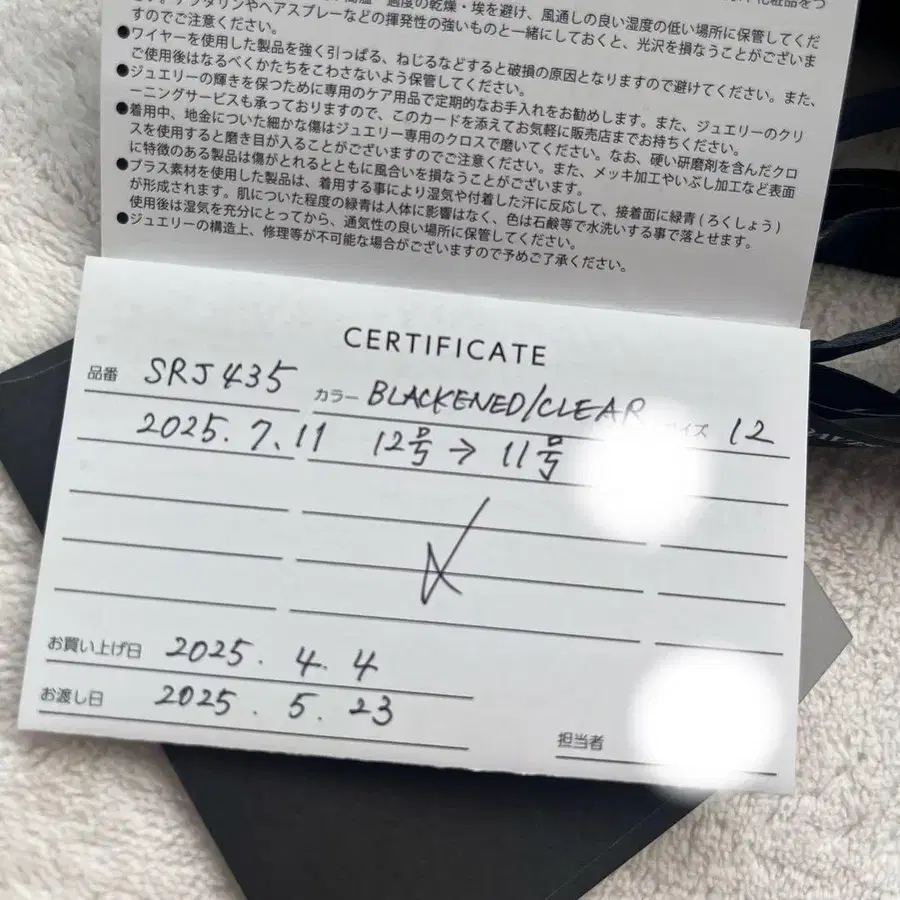 温・過度の乾燥・埃を避け、風通しの良い湿度の低い場所に保管してくだ
やヘアスプレーなどの揮発性の強いものと一緒にしておくと、光沢を損なうことがございま
すのでご注意ください。
●ワイヤーを使用した製品を強く引っぱる、ねじるなどすると破損の原因となりますので避けてください。また、
ご使用後はなるべくかたちをこわさないよう保管してください。
●ジュエリーの輝きを保つために専用のケア用品で定期的なお手入れをお勧めします。また、ジュエリーのクリ
ーニングサービスも承っておりますので、このカードを添えてお気軽に販売店までお持ちください。
●着用中、地金についた細かな傷はジュエリー専用のクロスで磨いてください。なお、硬い研磨剤を含んだクロ
スを使用すると磨き目が入ることがございますのでご注意ください。また、メッキ加工やいぶし加工など表面
に特徴のある製品は傷がとれるとともに風合いを損なうことがございます。
●ブラス素材を使用した製品は、着用する事により湿気や付着した汗に反応して、接着面に緑青（ろくしょう）
が形成されます。肌についた程度の緑青は人体に影響はなく、色は石鹸等で水洗いする事で落とせます。
使用後は湿気を充分にとってから、通気性の良い場所に保管してください。
●ジュエリーの構造上、修理等が不可能な場合がございますので予めご了承ください。
CERTIFICATE
品番 SRJ435 カラー BLACKENED/CLEAR イズ 12
2025.7.11 12号→11号
お買い上げ日 2025.4.4
お渡し日 2025.5.23
担当者